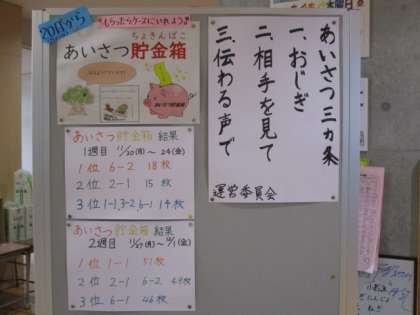 20日から
もらったらケースにいれよう!
ちょきんばこ
あいさつ貯金箱
あいさつ貯金箱 結果
1週目 11/20(月)〜24(金)
1位 6-2 18枚
2位 2-1 15枚
3位 1-1,3-2,6-1 14枚
あいさつ貯金箱 結果
2週目 11/27(月)〜12/1(金)
1位 1-1 51枚
2位 2-1 6-2 49枚
3位 6-1 46枚
あいさつ三カ条
一、おじぎ
二、相手を見て
三、伝わる声で
運営委員会